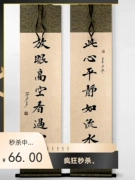 此心平静如流水
放眼高空看过云
秒杀中...
¥66.00
疯狂秒杀。